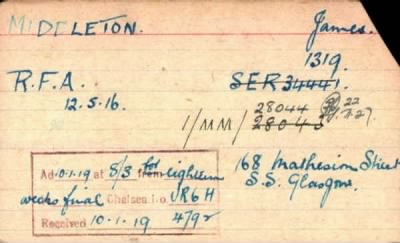 MIDDLETON. James.
1319.
R.F.A. SER 34441.
12.5.16. 28044 22
1/MM/ 28043 7.27.
Ad 10.1.19 at 5/3 for eighteen 168 Mathesion Street
weeks final Chelsea i.o UR6H S.S. Glasgow.
Received 10.1.19 4792